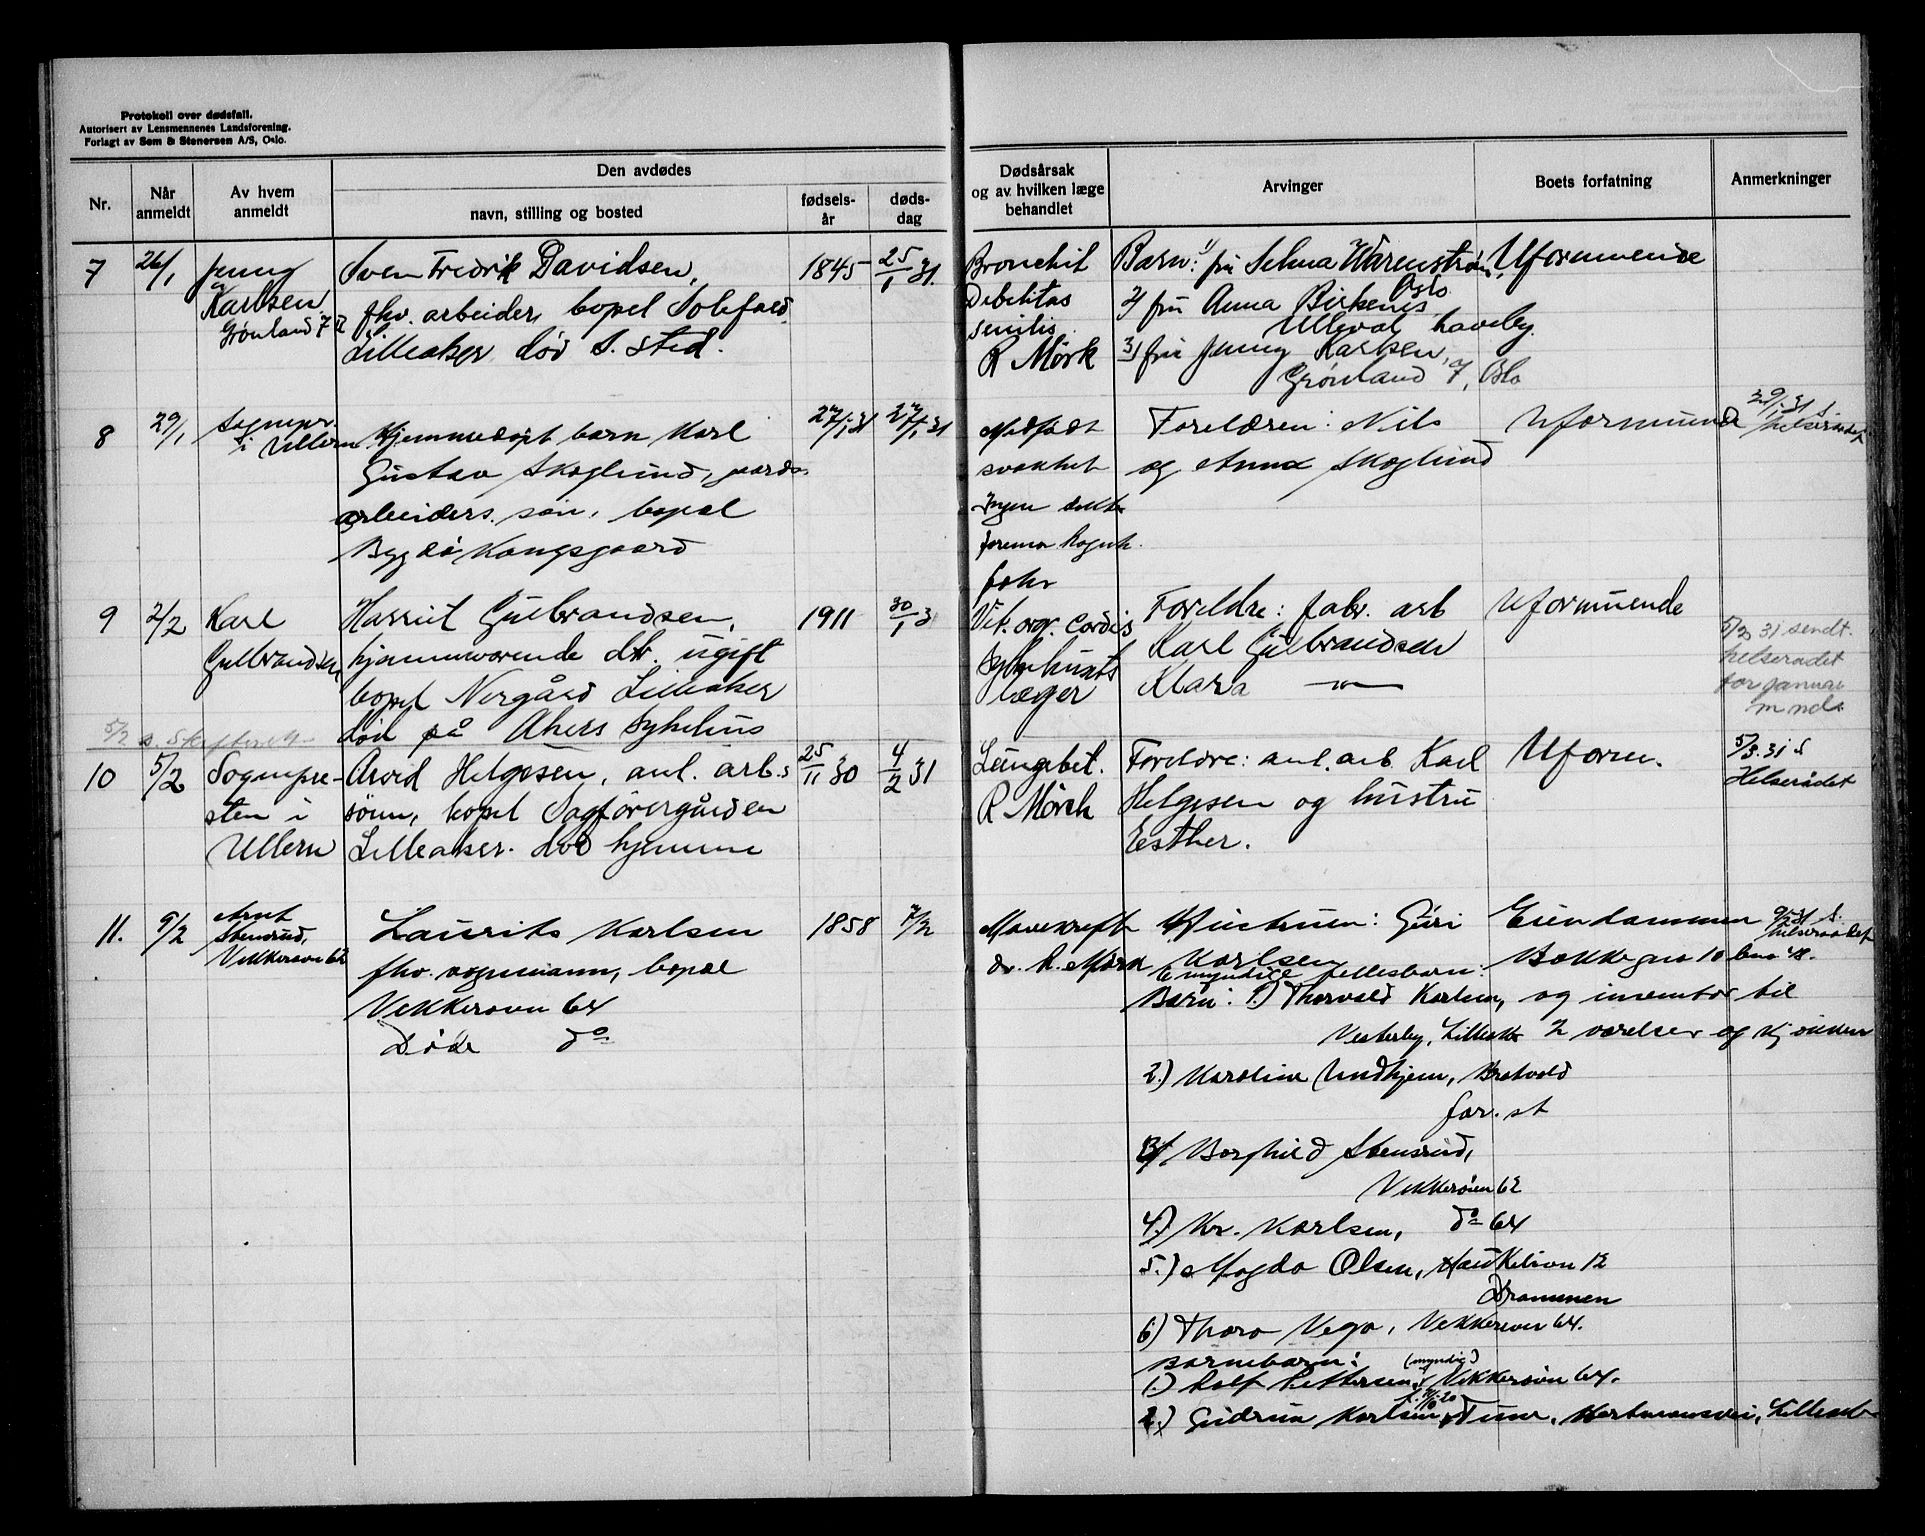 Protokoll over dødsfall.
Autorisert av Lensmennenes Landsforening.
Forlagt av Sem & Stenersen A/S, Oslo.
Nr.
Når anmeldt
Av hvem anmeldt
Den avdødes
navn, stilling og bosted
fødsels-år
døds-dag
Dødsårsak og av hvilken læge behandlet
Arvinger
Boets forfatning
Anmerkninger
7
26/1
Jenny
Karlsen
Grønland 7 II
Sven Fredrik Davidsen,
fhv. arbeider, bopel Solefald
Lilleaker død s. sted.
1845
25/1 31.
Bronchit
Debilitas
senilis
R Mörk
Barn: 1/ fru Selma Warenstrøm, Oslo
2/ fru Anna Birkenes
Ulleval haveby.
3/ fru Jenny Karlsen,
Grønland 7, Oslo
Uformuende
8
29/1
Sognepr.
i Ullern
Hjemmedøpt barn Karl
Gustav Skoglund, gaards-
arbeiders søn, bopæl
Bygdø Kongsgaard
27/1 31
27/1 31
Medfødt
svakhet
Ingen
Forældre: Nils
og Anna Skoglund
Uformuende
29/1 31 S.
helseraadet
9
2/2
Karl
Gulbrandsen
Harriet Gulbrandsen,
hjemmeværende dtr. ugift
bopel Nergård Lilleaker
død på Akers sykehus
1911
30/1 31
Vit. org. cordis
Sykehusets
læger
Foreldre: fabr. arb
Karl Gulbrandsen
Klara —"—
Uformuende
5/2 31 sendt.
helserådet
for januar
mnd.
5/2 s. Skifterett
10
5/2
Sognepre-
sten i
Ullern
Arvid Helgesen, anl. arb.s
sønn, bopel Sagførergården
Lilleaker. død hjemme
25/11 30
4/2 31
Lungebet.
R Mörch
Foreldre: anl. arb. Karl
Helgesen og hustru
Esther.
Uform.
5/3. 31 S
Helserådet
11.
9/2
Arnt
Stensrud,
Vekkerøvn 62
Laurits Karlsen
fhv. vognmann, bopæl
Vekkerøvn 64
Døde do
1858
7/2
Mavekreft
dr. R. Mörk
Hustruen: Guri
Karlsen
6 myndige fellesbarn:
Barn: 1.) Thorvald Karlsen,
Vesterby, Lilleaker
2.) Karoline Undhjem, Bretvold
3/ Borghild Stensrud,
Vekkerøien 62
4.) Kr. Karlsen, do 64
5.) Magda Olsen, Haukelivn 12
Drammen
6) Thora Vega, Vekkerøvn 64.
Barnebarn: (myndig)
1.) Rolf Pettersen, Vekkerøvn 64.
2.) Gudrun Karlsen, Tune, Hartmannsvei, Lilleaker
Eiendommen
Bakke gno 10 bno 48.
og inventar til
2 værelser og kjøkken
9/2 31 S.
helseraadet